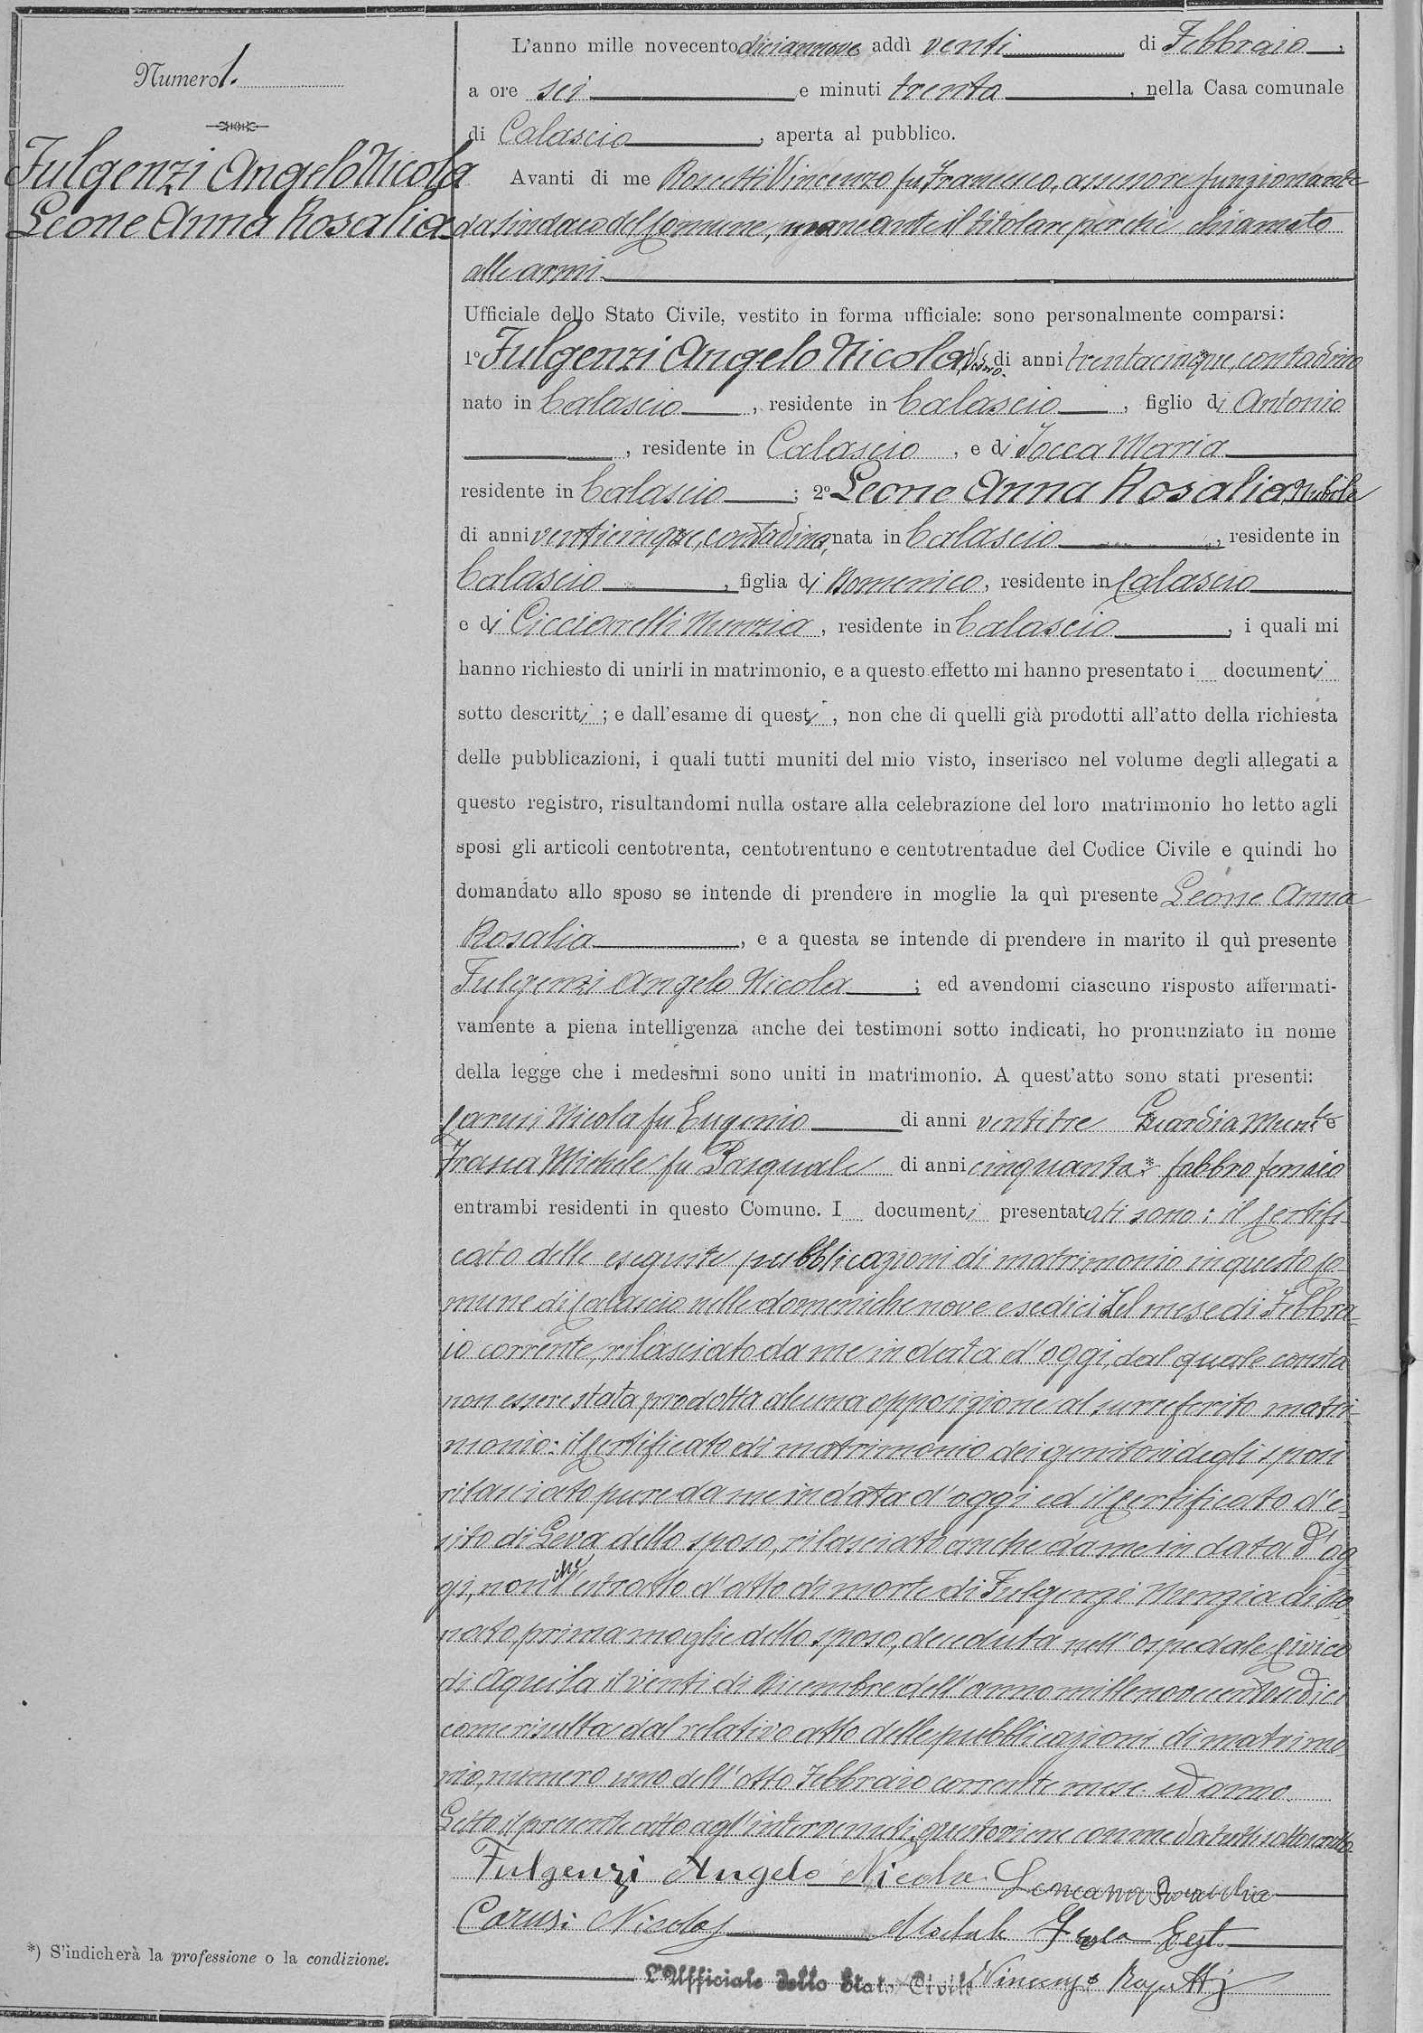 Numero 1.
Fulgenzi Angelo Nicola
Leone Anna Rosalia
L'anno mille novecentodiciannove addì venti di Febbraio,
a ore sei e minuti trenta, nella Casa comunale
di Calascio, aperta al pubblico.
Avanti di me Rossetti Vincenzo fu Francesco, assessore funzionante
da sindaco del Comune, mancante il titolare perchè chiamato
alle armi
Ufficiale dello Stato Civile, vestito in forma ufficiale: sono personalmente comparsi:
1º Fulgenzi Angelo Nicola, di anni trentacinque, contadino
nato in Calascio, residente in Calascio, figlio di Antonio
, residente in Calascio, e di Iocca Maria
residente in Calascio; 2º Leone Anna Rosalia, Nubile
di anni venticinque, contadina, nata in Calascio, residente in
Calascio, figlia di Domenico, residente in Calascio
e di Cicciarelli Nunzia, residente in Calascio, i quali mi
hanno richiesto di unirli in matrimonio, e a questo effetto mi hanno presentato i documenti
sotto descritti; e dall'esame di questi, non che di quelli già prodotti all'atto della richiesta
delle pubblicazioni, i quali tutti muniti del mio visto, inserisco nel volume degli allegati a
questo registro, risultandomi nulla ostare alla celebrazione del loro matrimonio ho letto agli
sposi gli articoli centotrenta, centotrentuno e centotrentadue del Codice Civile e quindi ho
domandato allo sposo se intende di prendere in moglie la quì presente Leone Anna
Rosalia, e a questa se intende di prendere in marito il quì presente
Fulgenzi Angelo Nicola; ed avendomi ciascuno risposto affermati-
vamente a piena intelligenza anche dei testimoni sotto indicati, ho pronunziato in nome
della legge che i medesimi sono uniti in matrimonio. A quest'atto sono stati presenti:
Carusi Nicola fu Eugenio di anni ventitre Guardia Munle e
Frasca Michele fu Pasquale di anni cinquanta* fabbro ferraio
entrambi residenti in questo Comune. I documenti presentatati sono: il certifi-
cato delle eseguite pubblicazioni di matrimonio in questo Co-
mune di Calascio nelle domeniche nove e sedici del mese di Febbra-
io corrente, rilasciato da me in data d'oggi, dal quale consta
non essere stata prodotta alcuna opposizione al surreferito matri-
monio: il certificato di matrimonio dei genitori degli sposi
rilasciato pure da me in data d'oggi ed il certificato d'e-
sito di Leva dello sposo, rilasciato anche da me in data d'og-
gi, non che l'estratto d'atto di morte di Fulgenzi Nunzia di Do-
nato, prima moglie dello sposo, deceduta nell'ospedale civico
di Aquila il venti di Dicembre dell'anno millenovecentoundici
come risulta dal relativo atto delle pubblicazioni di matrimo-
nio, numero uno dell'otto Febbraio corrente mese ed anno.
Letto il presente atto agl'intervenuti, questo viene con me da tutti sottoscritto
Fulgenzi Angelo Nicola Leone Anna Rosalia
Carusi Nicola Michele Frasca Test.
L'Ufficiale dello Stato Civile Vincenzo Rossetti
*) S'indicherà la professione o la condizione.